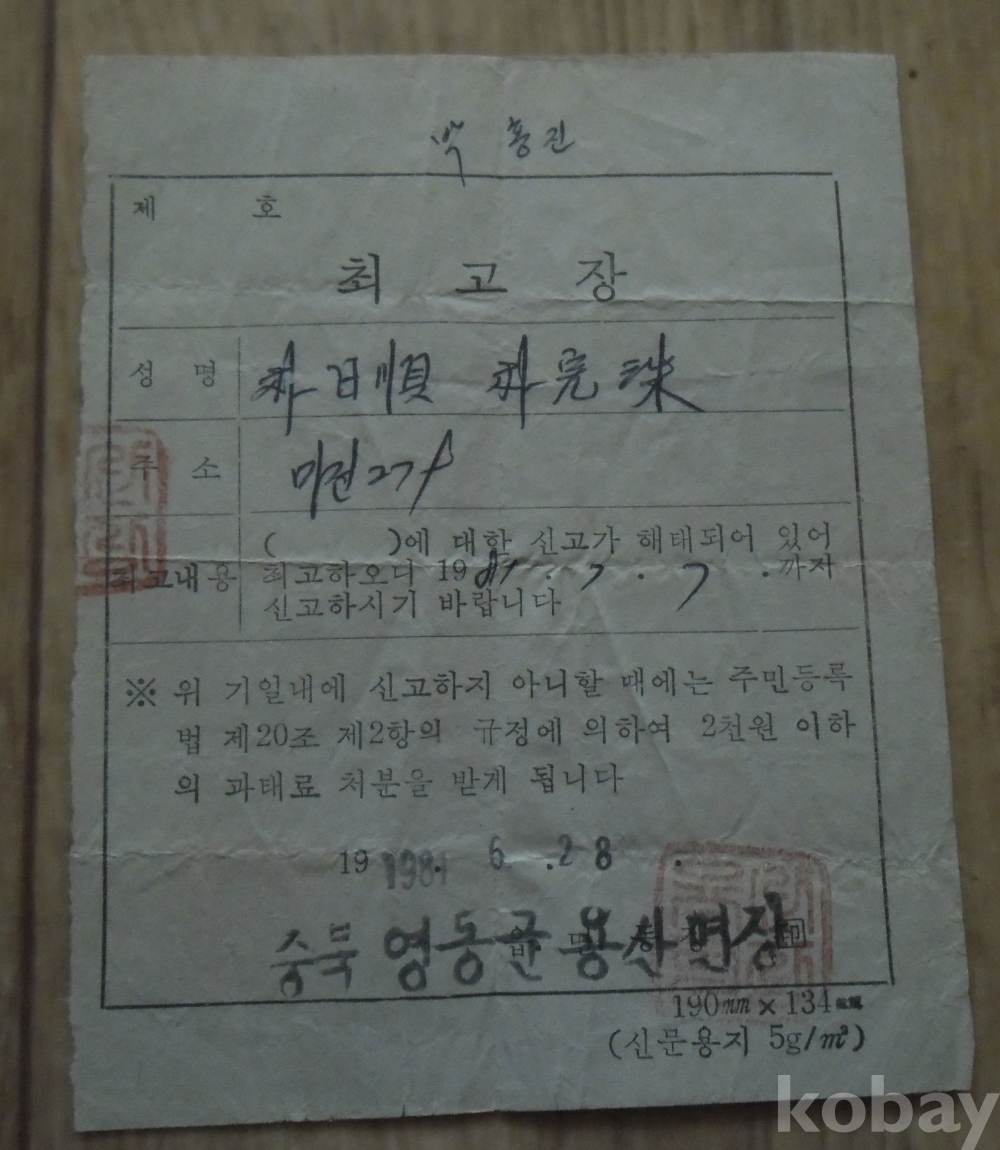 박 홍진
제 호
최 고 장
성 명 朴日順 朴完珠
주 소 미전2구
( )에 대한 신고가 해태되어 있어
최고내용 최고하오니 1981 . 7 . 7 . 까지
신고하시기 바랍니다
※ 위 기일내에 신고하지 아니할 때에는 주민등록
법 제20조 제2항의 규정에 의하여 2천원 이하
의 과태료 처분을 받게 됩니다
19 1981. 6 . 28 .
충북 영동군 용산면장 印
190mm × 134mm
(신문용지 5g/㎡)
kobay